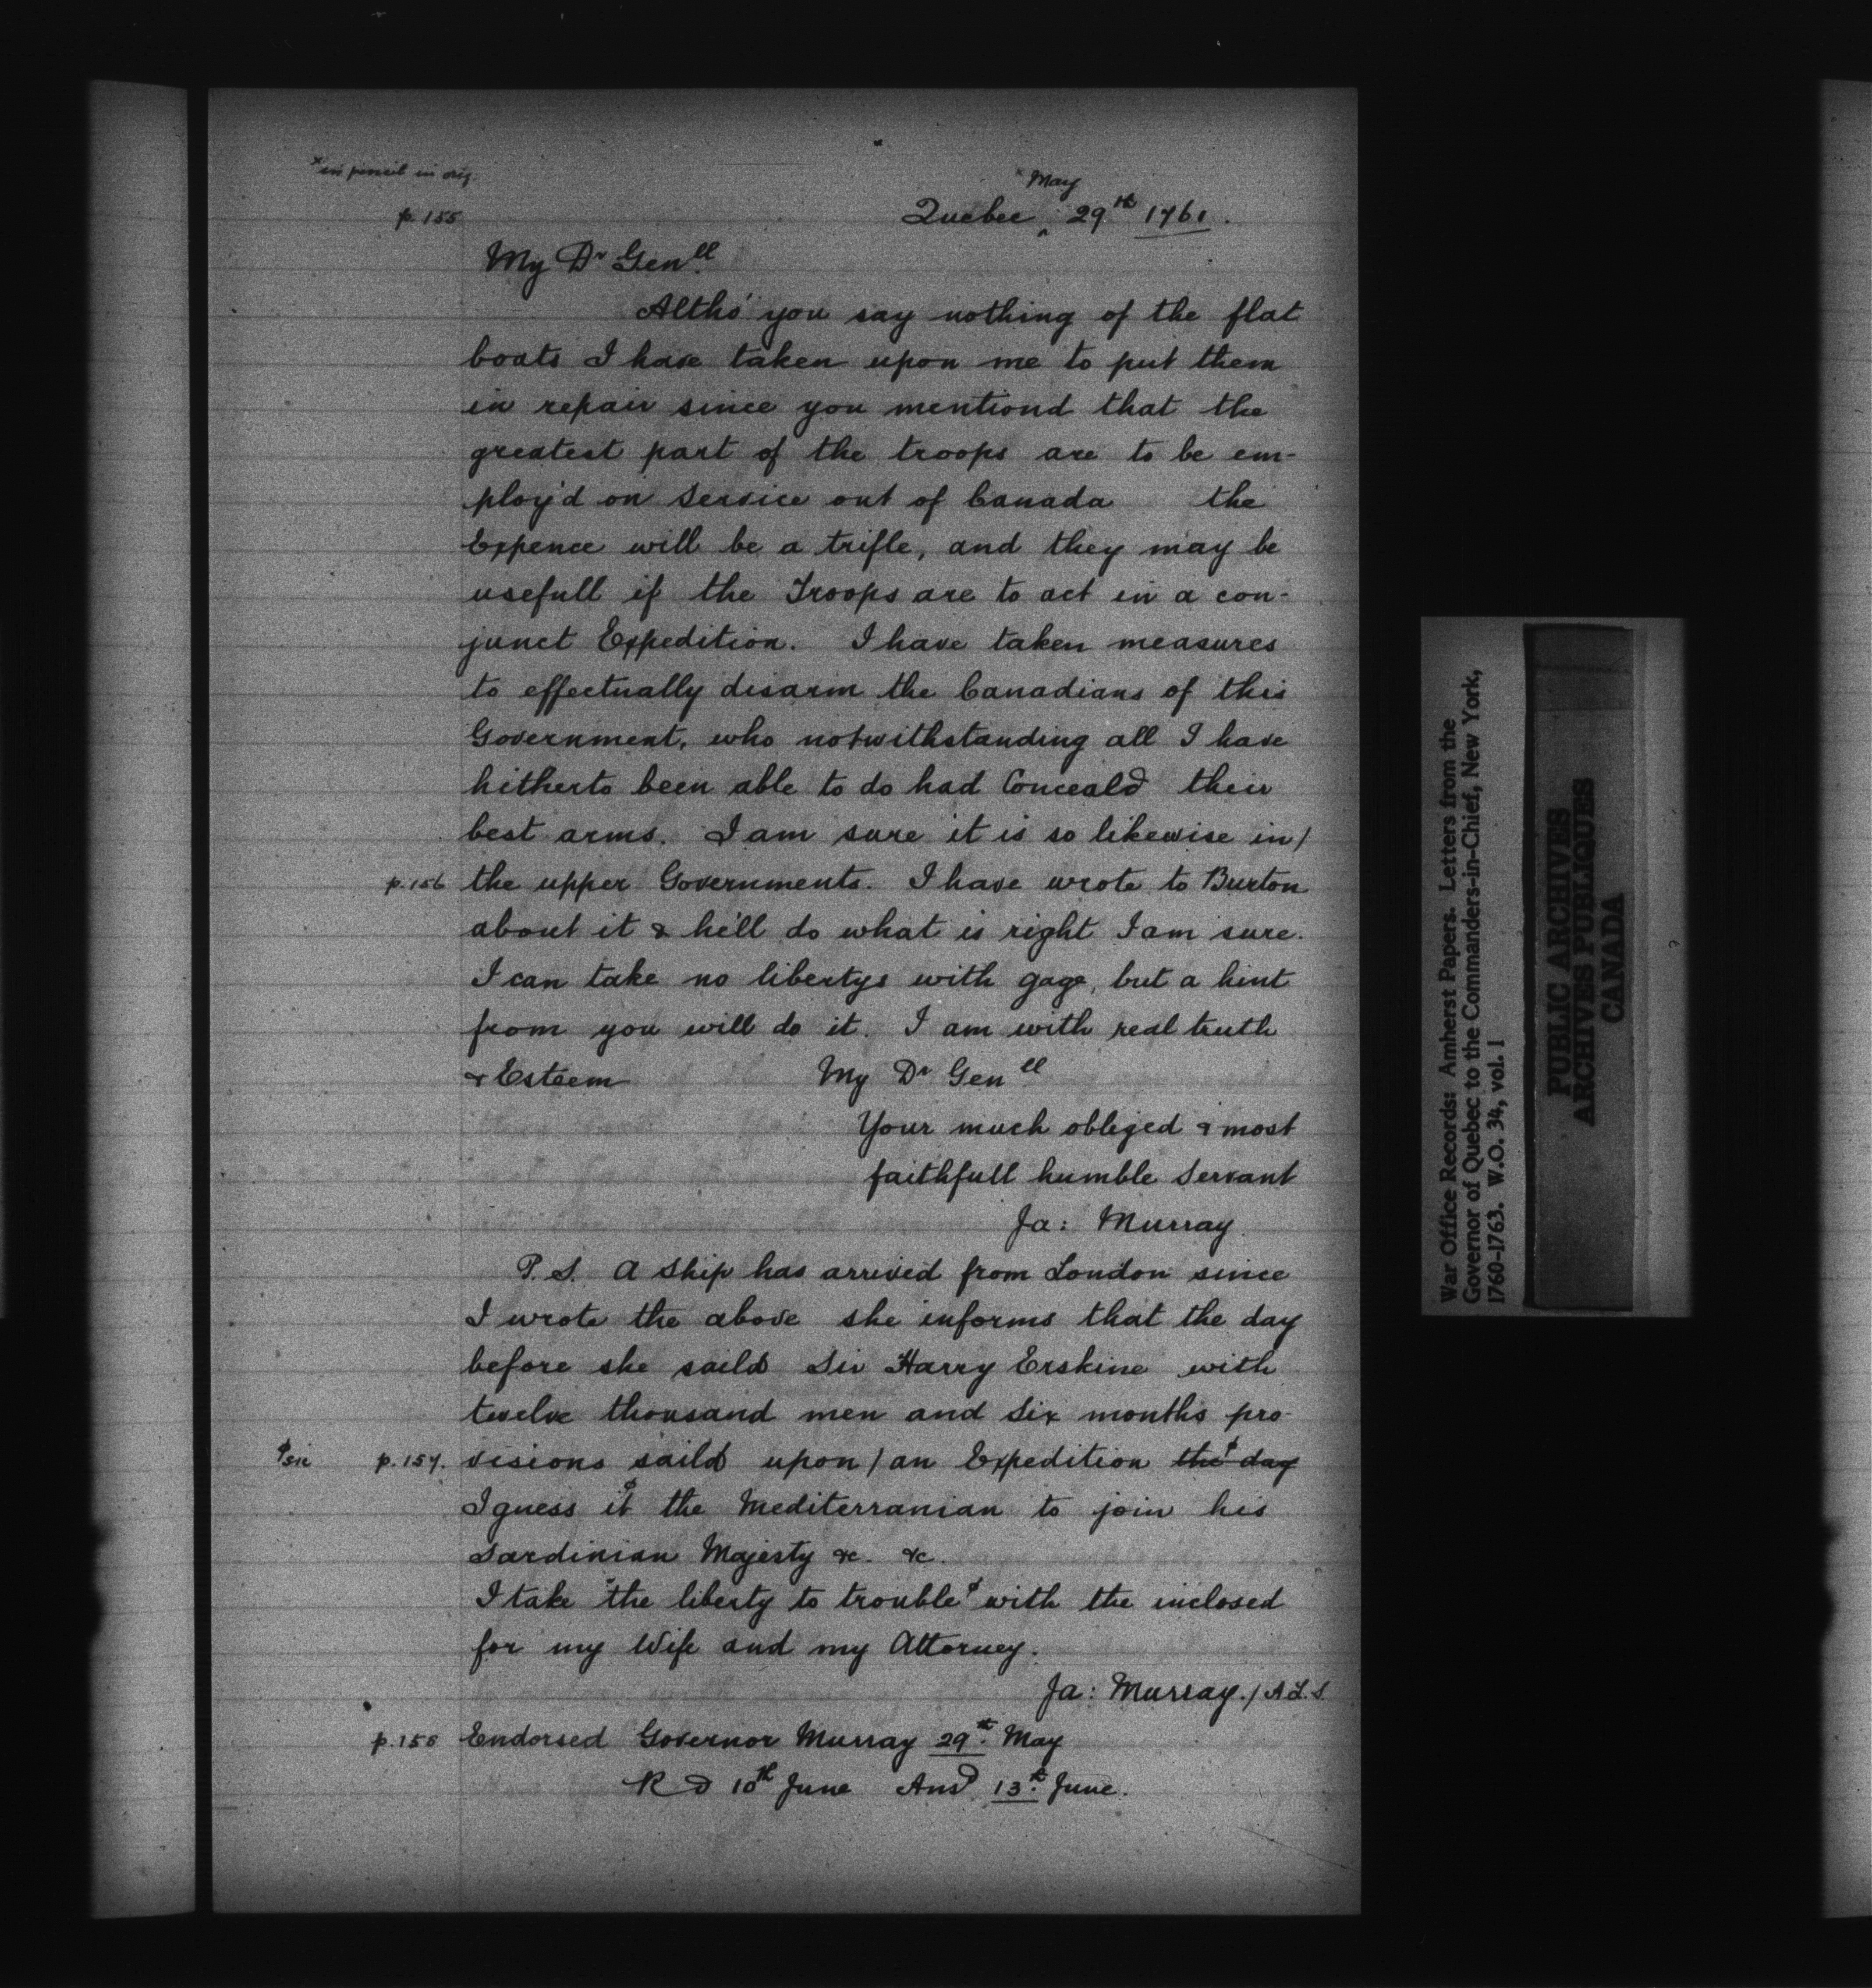 x in pencil in orig.
x May
p. 155 Quebec ^ 29th 1761.
My Dr Genll
Altho' you say nothing of the flat
boats I have taken upon me to put them
in repair since you mentiond that the
greatest part of the troops are to be em-
ploy'd on Service out of Canada the
Expence will be a trifle, and they may be
usefull if the Troops are to act in a con-
junct Expedition. I have taken measures
to effectually disarm the Canadians of this
Government, who notwithstanding all I have
hitherto been able to do had Conceald their
best arms. I am sure it is so likewise in /
p. 156 the upper Governments. I have wrote to Burton
about it & he'll do what is right I am sure.
I can take no libertys with gage, but a hint
from you will do it. I am with real truth
& Esteem My Dr Genll
Your much obliged & most
faithfull humble Servant
Ja: Murray
P.S. A Ship has arrived from London since
I wrote the above she informs that the day
before she saild Sir Harry Erskine with
twelve thousand men and Six months pro-
sic p. 157. visions saild upon / an Expedition the day
I guess it the Mediterranian to join his
Sardinian Majesty &c. &c.
I take the liberty to trouble with the inclosed
for my Wife and my Attorney.
Ja: Murray. / A.L.S.
p. 158 Endorsed Governor Murray 29th May
Rd 10th June Ansd 13th June.
War Office Records: Amherst Papers. Letters from the
Governor of Quebec to the Commanders-in-Chief, New York,
1760-1763. W.O. 34, vol. 1
PUBLIC ARCHIVES
ARCHIVES PUBLIQUES
CANADA